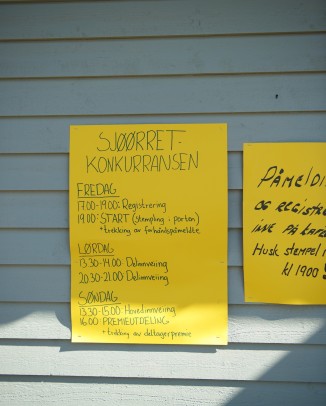 SJØØRRET-
KONKURRANSEN
FREDAG
17.00-19.00: Registrering
19.00: START (stempling i porten)
*trekking av forhåndspåmeldte
LØRDAG
13.30-14.00: Delinnveiing
20.30-21.00: Delinnveiing
SØNDAG
13.30-15.00: Hovedinnveiing
16.00: PREMIEUTDELING
*trekking av deltagerpremie
PÅMELDI
OG REGISTRE
INNE PÅ
Husk stempel
kl 1900